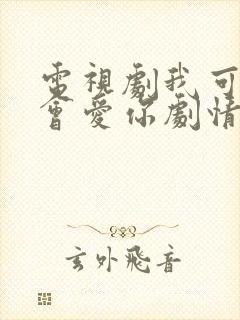 電視劇我可
會愛你劇情
玄外飛音